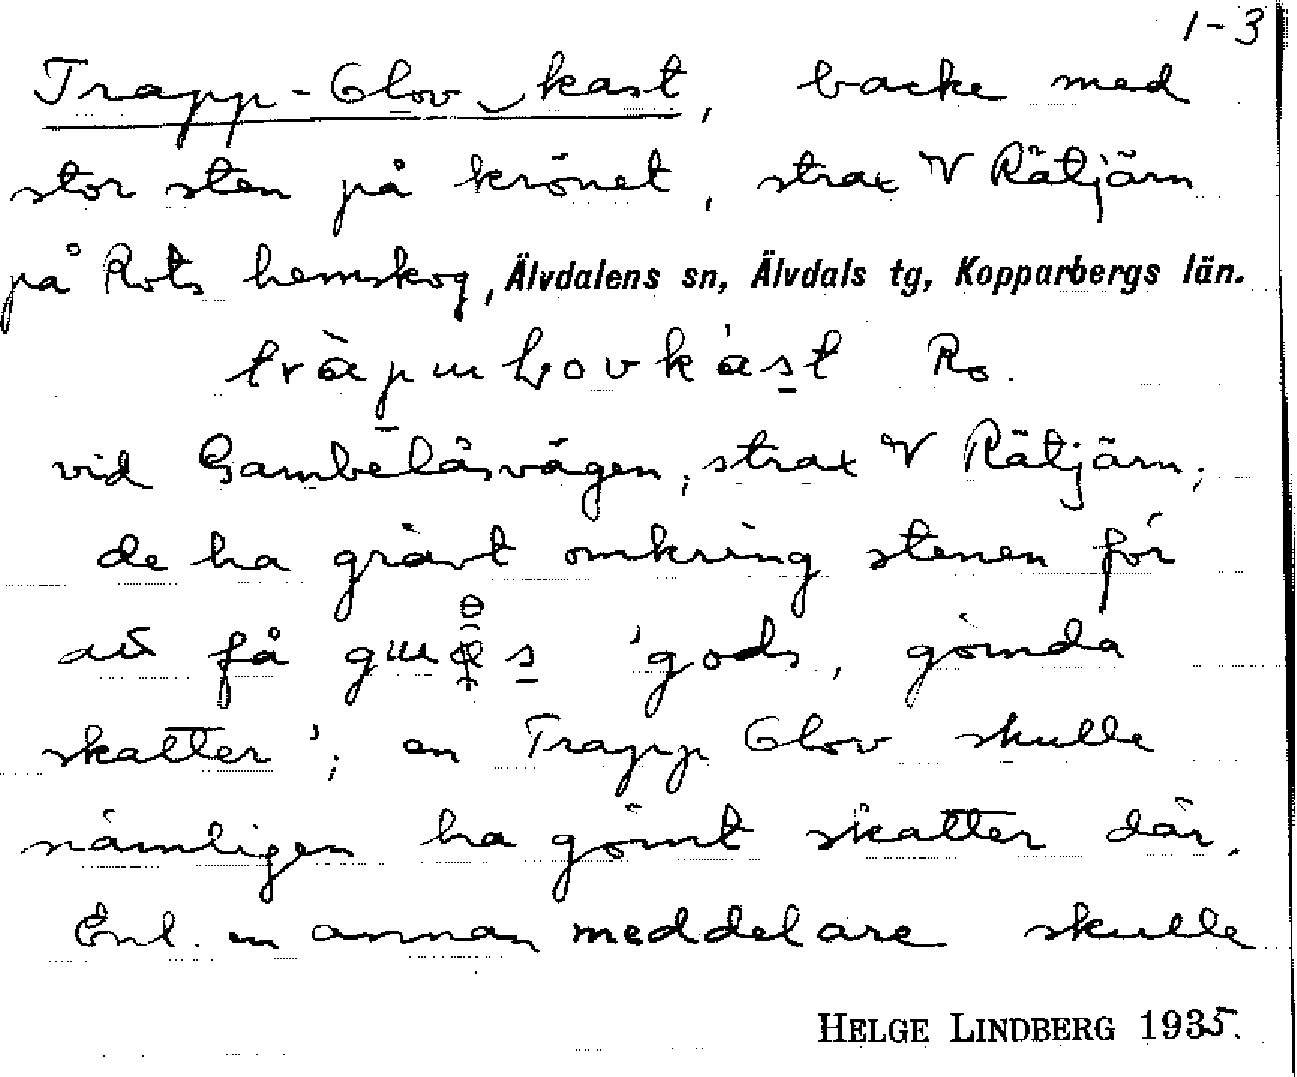 1-3
Trapp-Olov kast, backe med
stor sten på krönet, strax V Rätjärn
på Rots hemskog, Älvdalens sn, Älvdals tg, Kopparbergs län.
Ro.
vid Gambelåsvägen, strax V Rätjärn;
de ha grävt omkring stenen för
att få 'gods, gömda
skatter'; en Trapp Olov skulle
nämligen ha gömt skatter där.
Enl. en annan meddelare skulle
HELGE LINDBERG 1935.